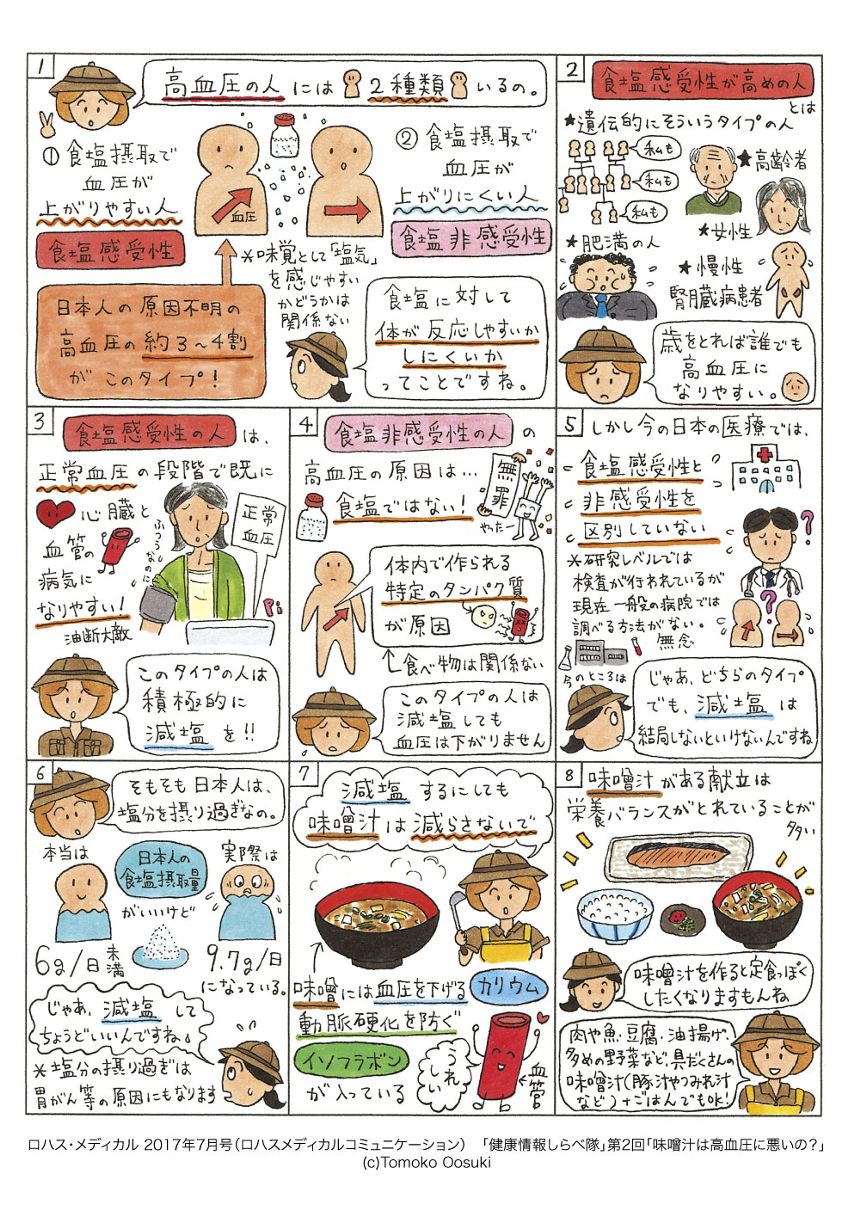 1
高血圧の人には2種類いるの。
①食塩摂取で
血圧が
上がりやすい人
食塩感受性
血圧
②食塩摂取で
血圧が
上がりにくい人
食塩非感受性
日本人の原因不明の
高血圧の約3〜4割
がこのタイプ!
*味覚として「塩気」
を感じやすい
かどうかは
関係ない
食塩に対して
体が反応しやすいか
しにくいか
ってことですね。
2
食塩感受性が高めの人
とは
★遺伝的にそういうタイプの人
私も
私も
私も
★高齢者
★女性
★肥満の人
★慢性
腎臓病患者
歳をとれば誰でも
高血圧に
なりやすい。
3
食塩感受性の人は、
正常血圧の段階で既に
心臓と
血管の
病気に
なりやすい!
油断大敵
ふつうなのに
正常
血圧
Pi
このタイプの人は
積極的に
減塩を!!
4
食塩非感受性の人の
高血圧の原因は…
食塩ではない!
無罪
やったー
体内で作られる
特定のタンパク質
が原因
↑食べ物は関係ない
このタイプの人は
減塩しても
血圧は下がりません
5
しかし今の日本の医療では、
食塩感受性と
非感受性を
区別していない
*研究レベルでは
検査が行われているが
現在一般の病院では
調べる方法がない。
無念
?
?
今のところは
じゃあ、どちらのタイプ
でも、減塩は
結局しないといけないんですね
6
そもそも日本人は、
塩分を摂り過ぎなの。
本当は
日本人の
食塩摂取量
実際は
がいいけど
6g/日未満
9.7g/日
になっている。
じゃあ、減塩して
ちょうどいいんですね。
*塩分の摂り過ぎは
胃がん等の原因にもなります
7
減塩するにしても
味噌汁は減らさないで
味噌には血圧を下げるカリウム
動脈硬化を防ぐ
イソフラボン
が入っている
うれしい
血管
8
味噌汁がある献立は
栄養バランスがとれていることが
多い
味噌汁を作ると定食っぽく
したくなりますもんね
肉や魚、豆腐、油揚げ、
多めの野菜など、具だくさんの
味噌汁(豚汁やつみれ汁
など)+ごはんでもOK!
ロハス・メディカル 2017年7月号(ロハスメディカルコミュニケーション) 「健康情報しらべ隊」第2回「味噌汁は高血圧に悪いの?」
(c)Tomoko Oosuki